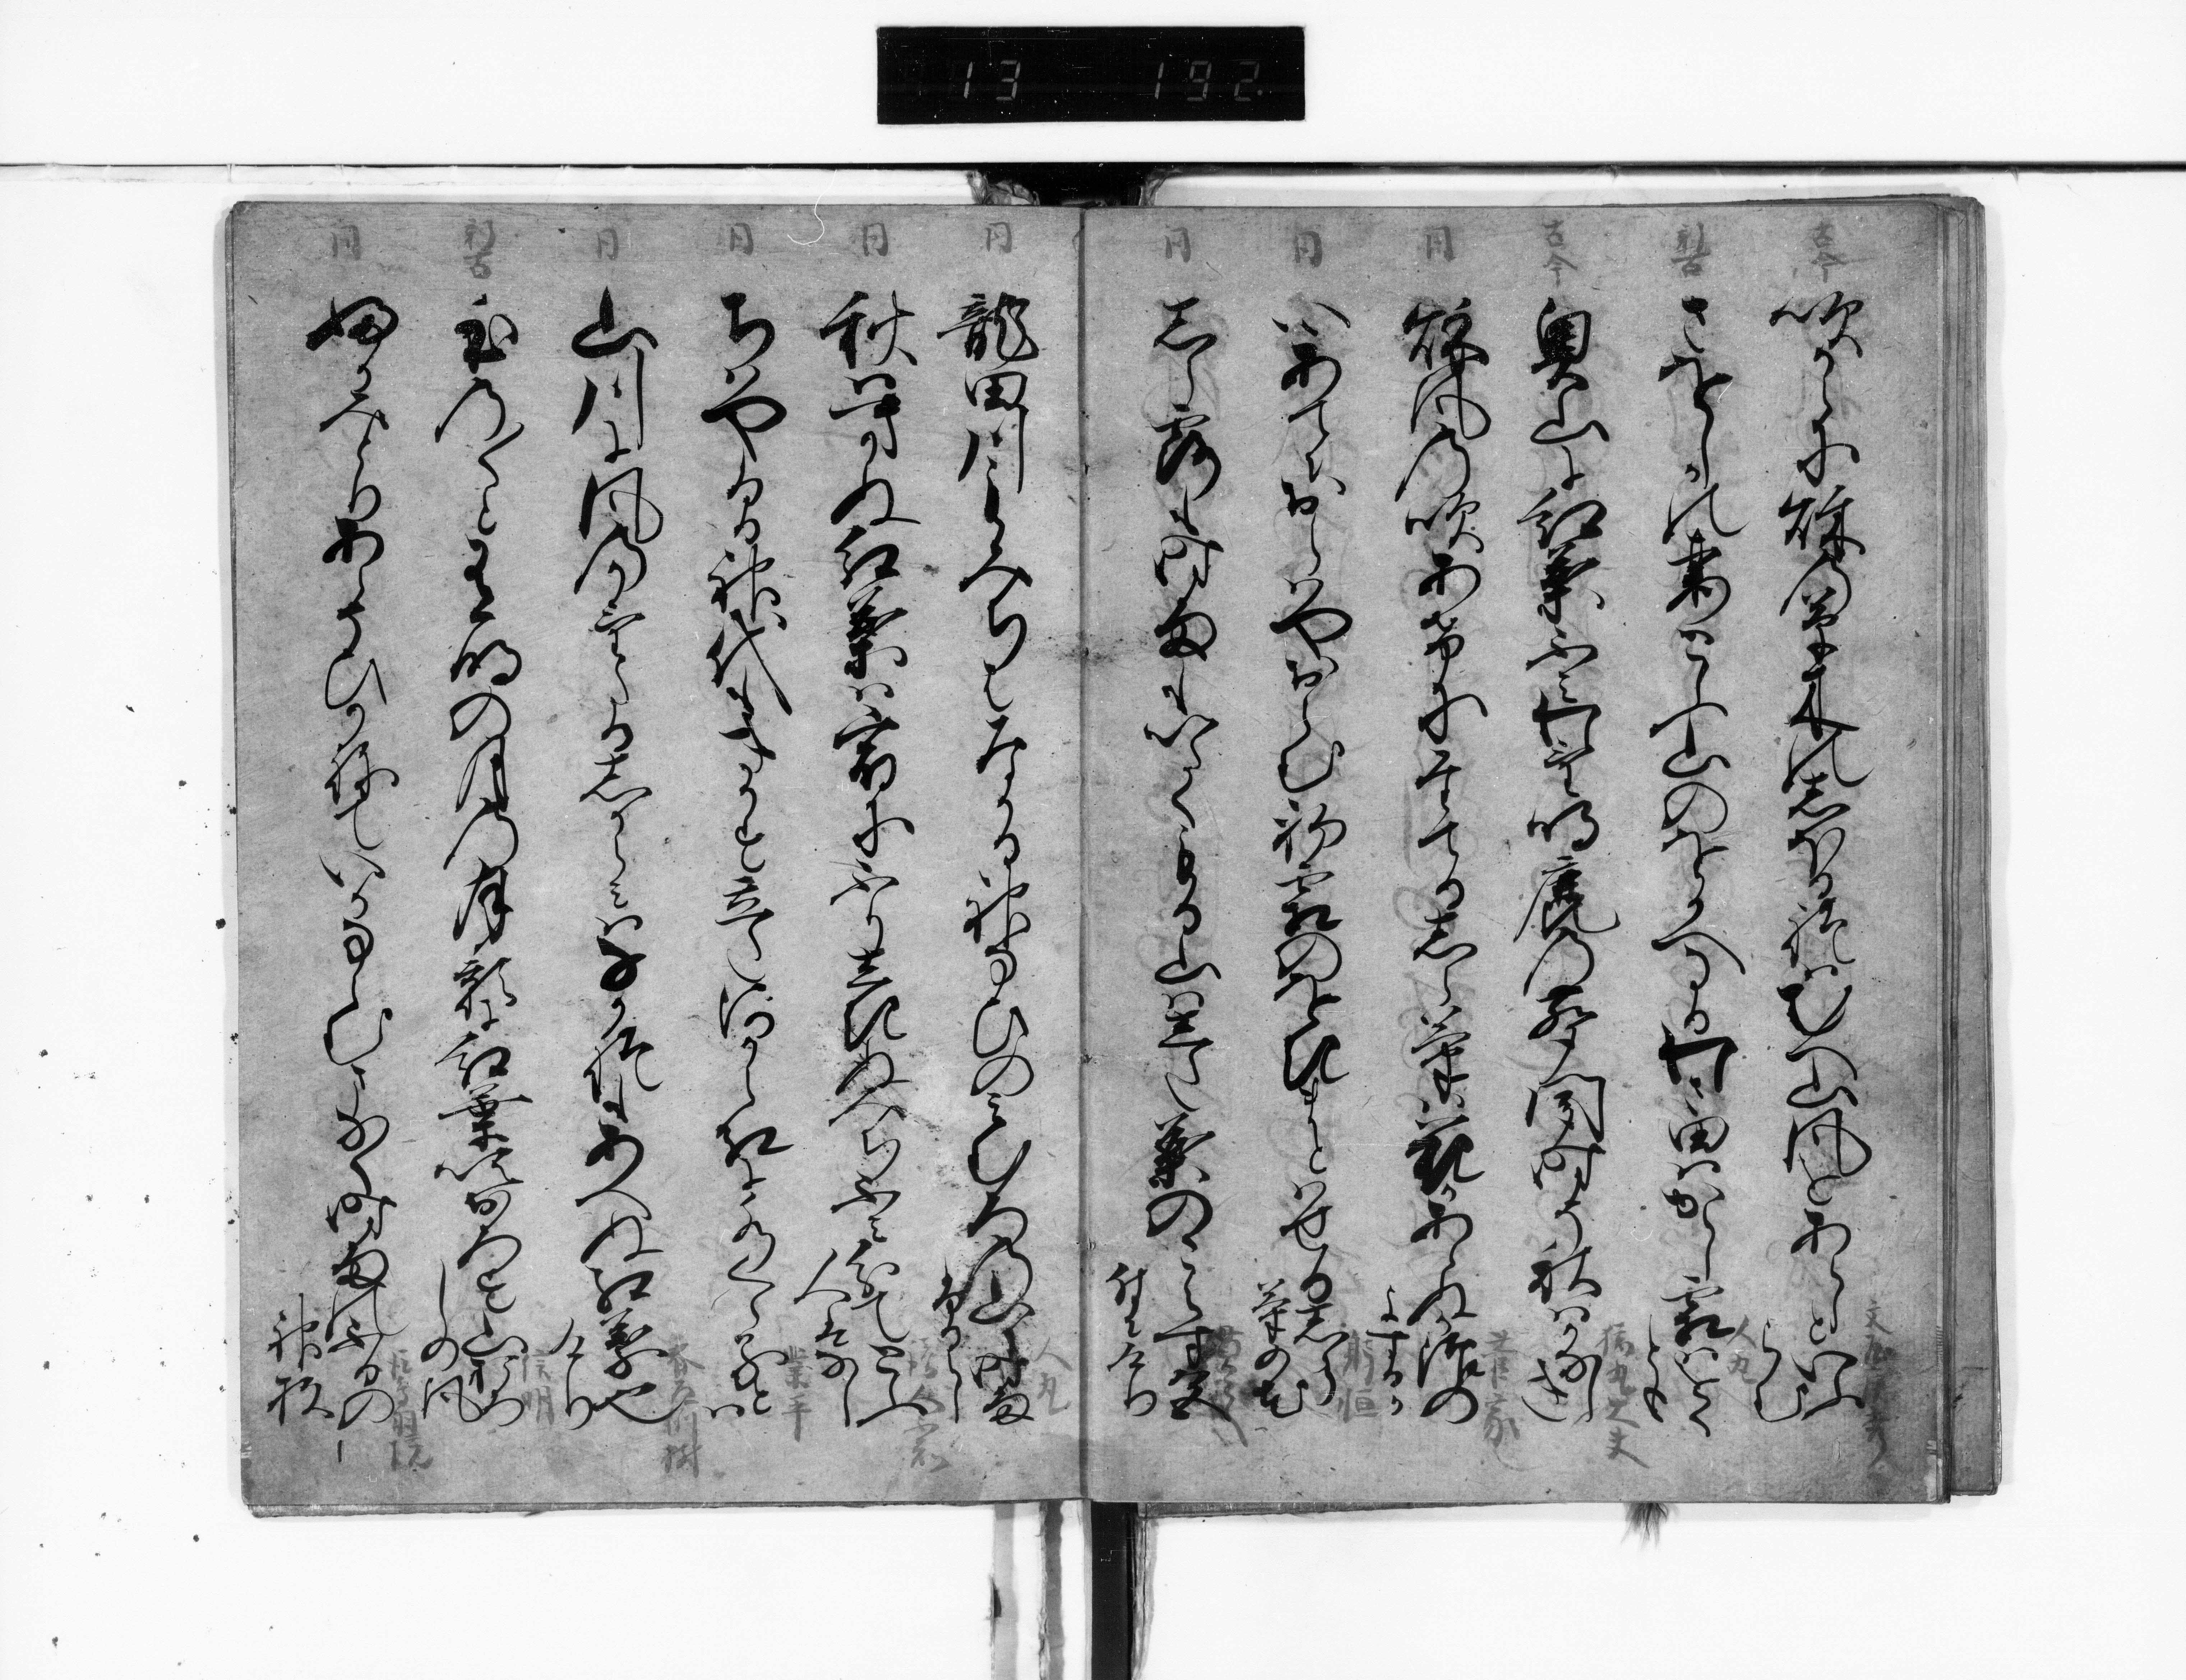 古今
文屋康秀
吹からに秋の草木のしほるれはむへ山風をあらしといふ
らむ
新古
人丸
さをしかの妻とふ山のをかへなるわさ田はからし霜はをく
とも
古今
猿丸大夫
奥山に紅葉ふみ分鳴鹿の声聞時そ秋はかなしき
同
菅家
秋風の吹あけにたてるしら菊は花かあらぬか浪の
よするか
同
躬恒
心あてにおらはやおらむ初霜のをきまとはせるしら
菊の花
同
しら露も時雨もいたくもる山は下葉のこらす色
付にけり
同
人丸
龍田川もみち葉なかる神なひのみむろの山に時雨
ふるらし
同
秋は来ぬ紅葉は宿にふりしきぬ道ふみ分てとふ
人はなし
同
業平
ちはやふる神代もきかす立田河から紅に水くゝるとは
同
春道列樹
山川に風のかけたるしからみはなかれもあへぬ紅葉也
けり
新古
信明
ほの〱と有明の月の月影に紅葉吹おろす山おろ
しの風
同
後鳥羽院
ふかみとりあらそひかねていかならむまなく時雨のふるの
神杉